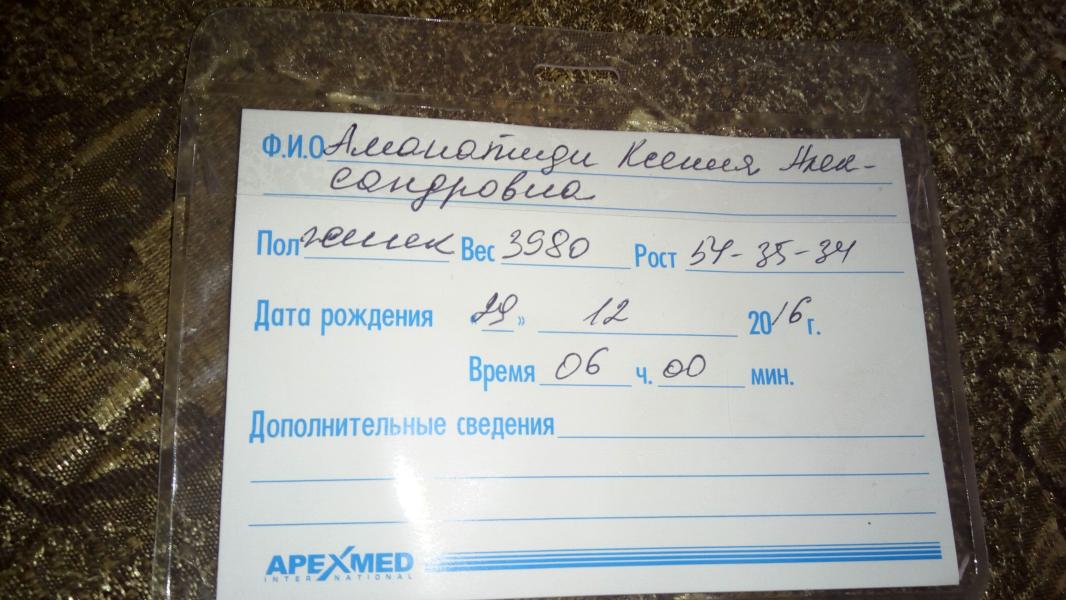 Ф.И.О Аманатиди Ксения Алек-
сандровна
Пол женск Вес 3980 Рост 54-35-34
Дата рождения «29» 12 2016 г.
Время 06 ч. 00 мин.
Дополнительные сведения
APEXMED
INTERNATIONAL